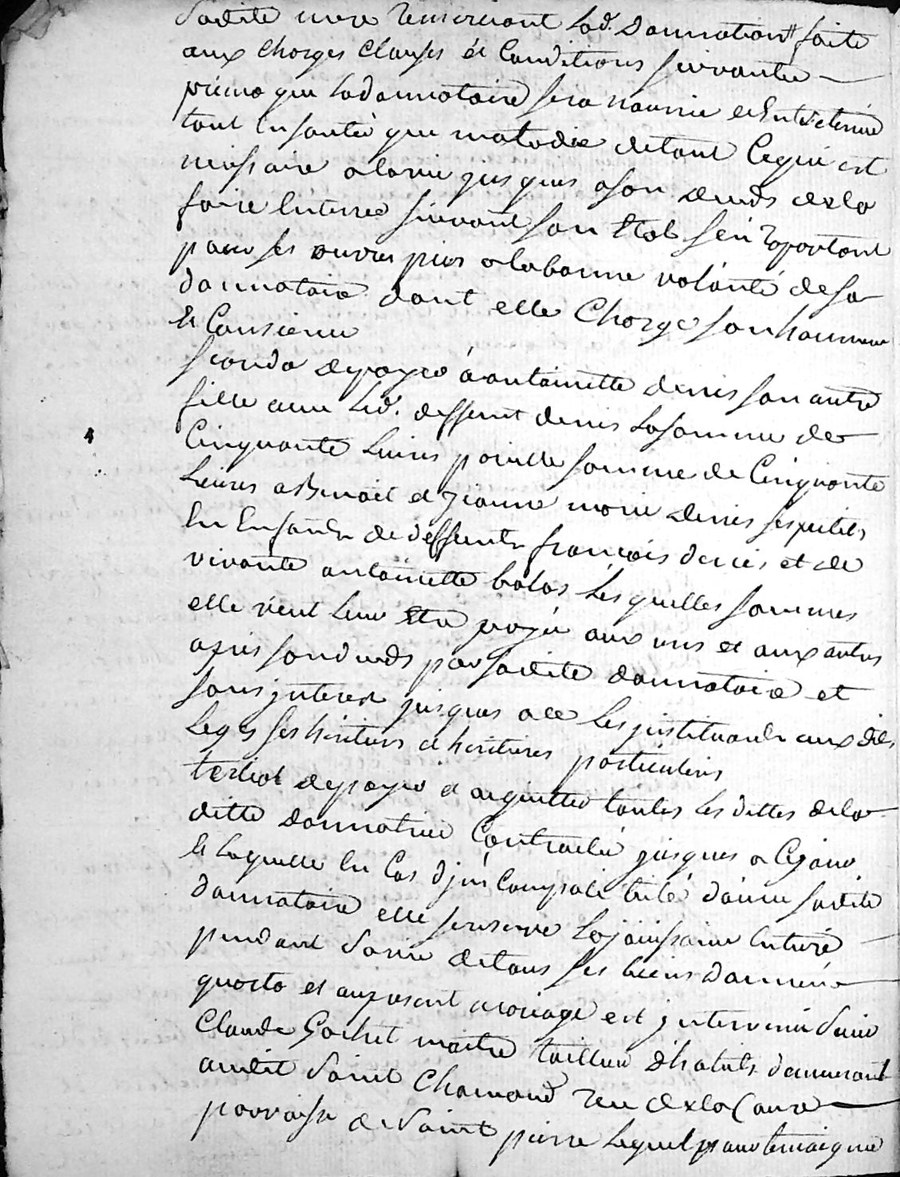 sadite mere remerciant lad. donnation faite
aux charges clauses et conditions suivantes
primo que ladonnatoire sera nourrie et entretenue
tant en santée que maladie detout cequi est
nesessaire alavie jusques ason deceds dela
faire enterrer suivant son état s'en raportant
pour ses euvres pies alabonne volonté desa
donnataire dont elle charge son honneur
et consience
secondo depayer à antoinette denis son autre
fille aud. deffunt denis lasomme de
cinquante livres pareille somme de cinquante
livres a Benoit et jeanne marie denis ses petits
en enfants de deffunt françois denis et de
vivante antoinette balas lesquelles sommes
elle veut leur etre payée aux uns et aux autres
apres son deceds par sadite donnataire et
sans interest jusques a ce les instituants aux dits
leges ses heritiers et heritieres particuliers
tertio depayer et aquitter toutes les dettes dela
ditte donnatrice contractée jusques a cejour
et laquelle en cas d'jncompatibilité d'avec sadite
donnataire elle se reserve lajouissance entiere
pendant savie detous ses biens donnés
quarto et au present mariage est jntervenu sieur
Claude Gachet maitre tailleur d'habits demeurant
audit Saint Chamond rue dela
parroisse de Saint pierre lequel pour temoigner